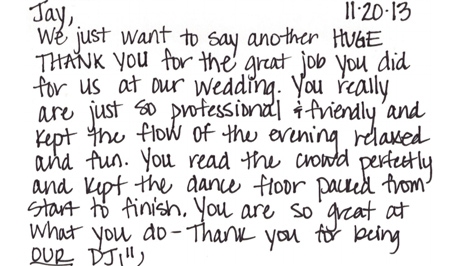 Jay, 11.20.13
We just want to say another HUGE
THANK YOU for the great job you did
for us at our wedding. You really
are just so professional & friendly and
kept the flow of the evening relaxed
and fun. You read the crowd perfectly
and kept the dance floor packed from
start to finish. You are so great at
what you do - Thank you for being
OUR DJ!!